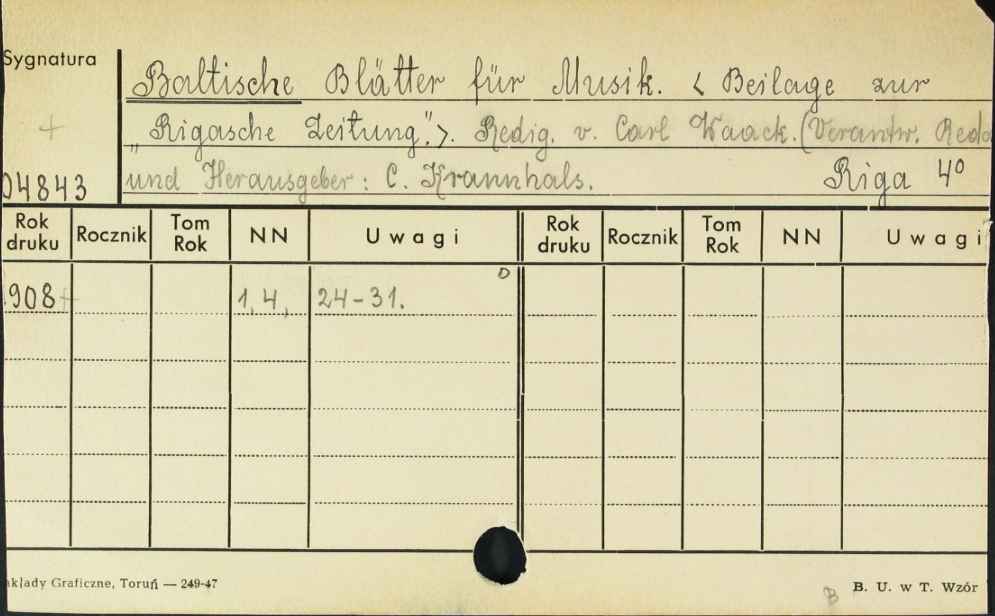 Sygnatura
Baltische Blätter für Musik. < Beilage zur
„Rigasche Zeitung.">. Redig. v. Carl Waack. (Verantw. Reda
+
04843
und Herausgeber: C. Krannhals. Riga 4°
Rok druku Rocznik Tom Rok NN Uwagi Rok druku Rocznik Tom Rok NN Uwagi
908+ 1, 4, 24-31. D
kłady Graficzne, Toruń — 249-47
B
B. U. w T. Wzór